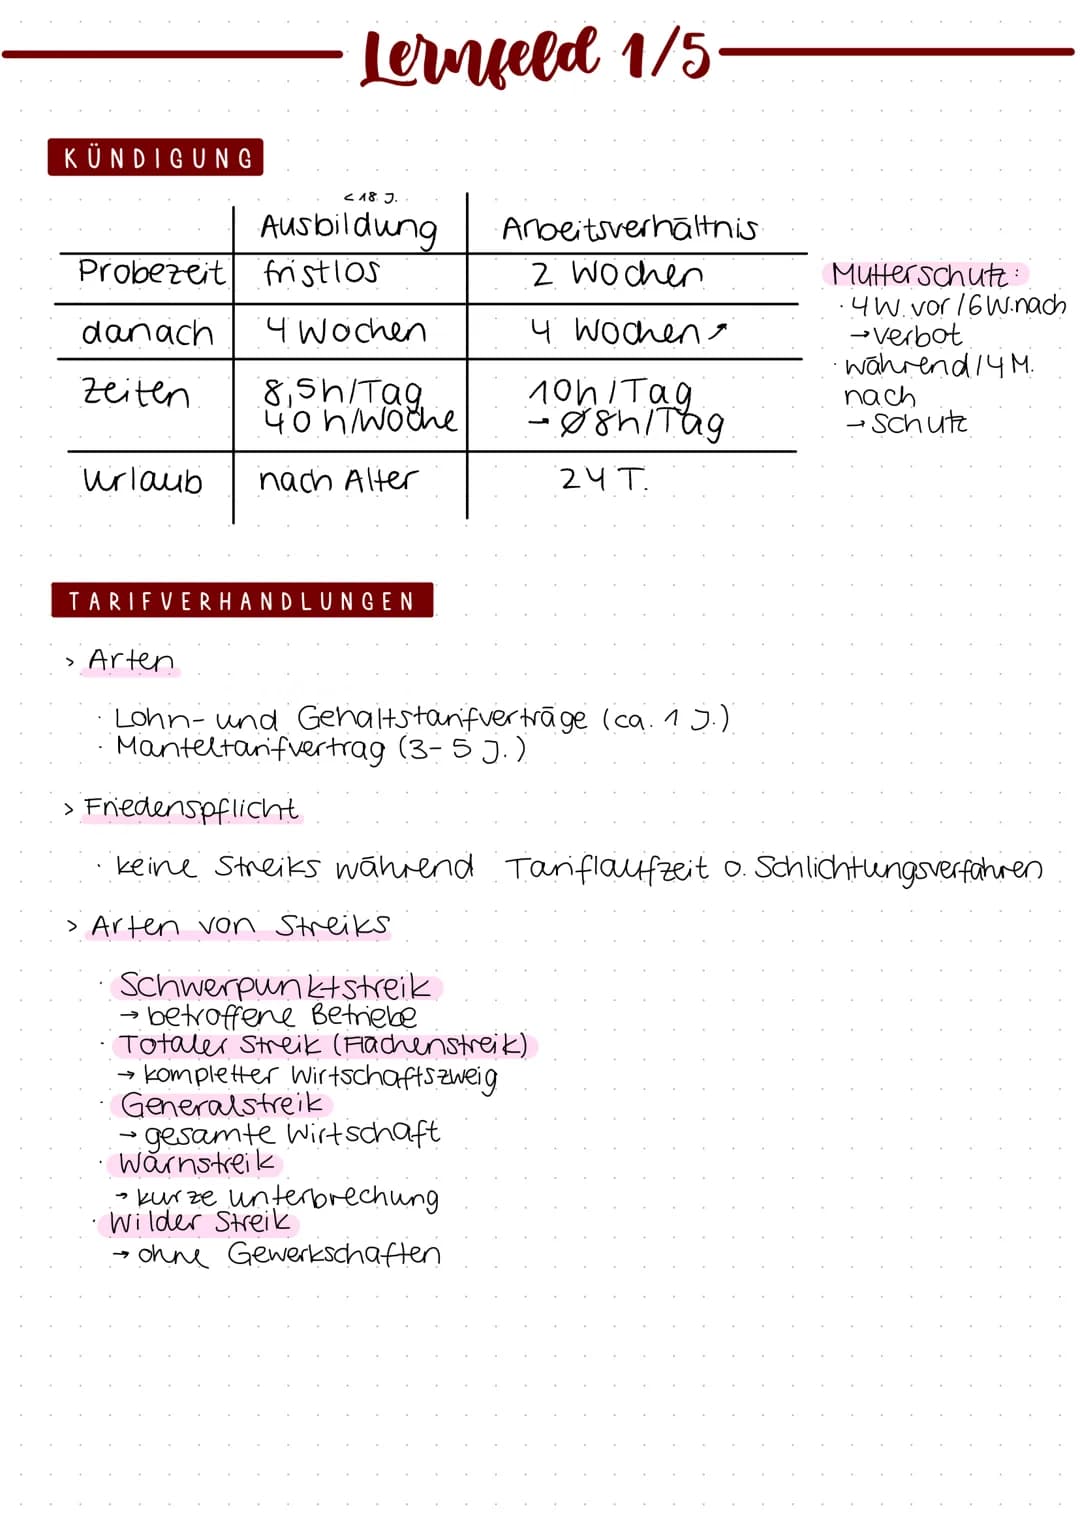 Lernfeld 1/5
KÜNDIGUNG
< 18 J.
Ausbildung Arbeitsverhältnis
Probezeit fristlos 2 Wochen
danach 4 Wochen 4 Wochen ↗
Zeiten 8,5h/Tag 10h/Tag
40h/Woche → Ø8h/Tag
Urlaub nach Alter 24 T.
Mutterschutz:
· 4 W. vor / 6 W. nach
→ Verbot
· während / 4 M.
nach
→ Schutz
TARIFVERHANDLUNGEN
> Arten
· Lohn- und Gehaltstarifverträge (ca. 1 J.)
· Manteltarifvertrag (3-5 J.)
> Friedenspflicht
· keine Streiks während Tariflaufzeit o. Schlichtungsverfahren
> Arten von Streiks
· Schwerpunktstreik
→ betroffene Betriebe
· Totaler Streik (Flächenstreik)
→ kompletter Wirtschaftszweig
· Generalstreik
→ gesamte Wirtschaft
· Warnstreik
→ kurze Unterbrechung
· Wilder Streik
→ ohne Gewerkschaften